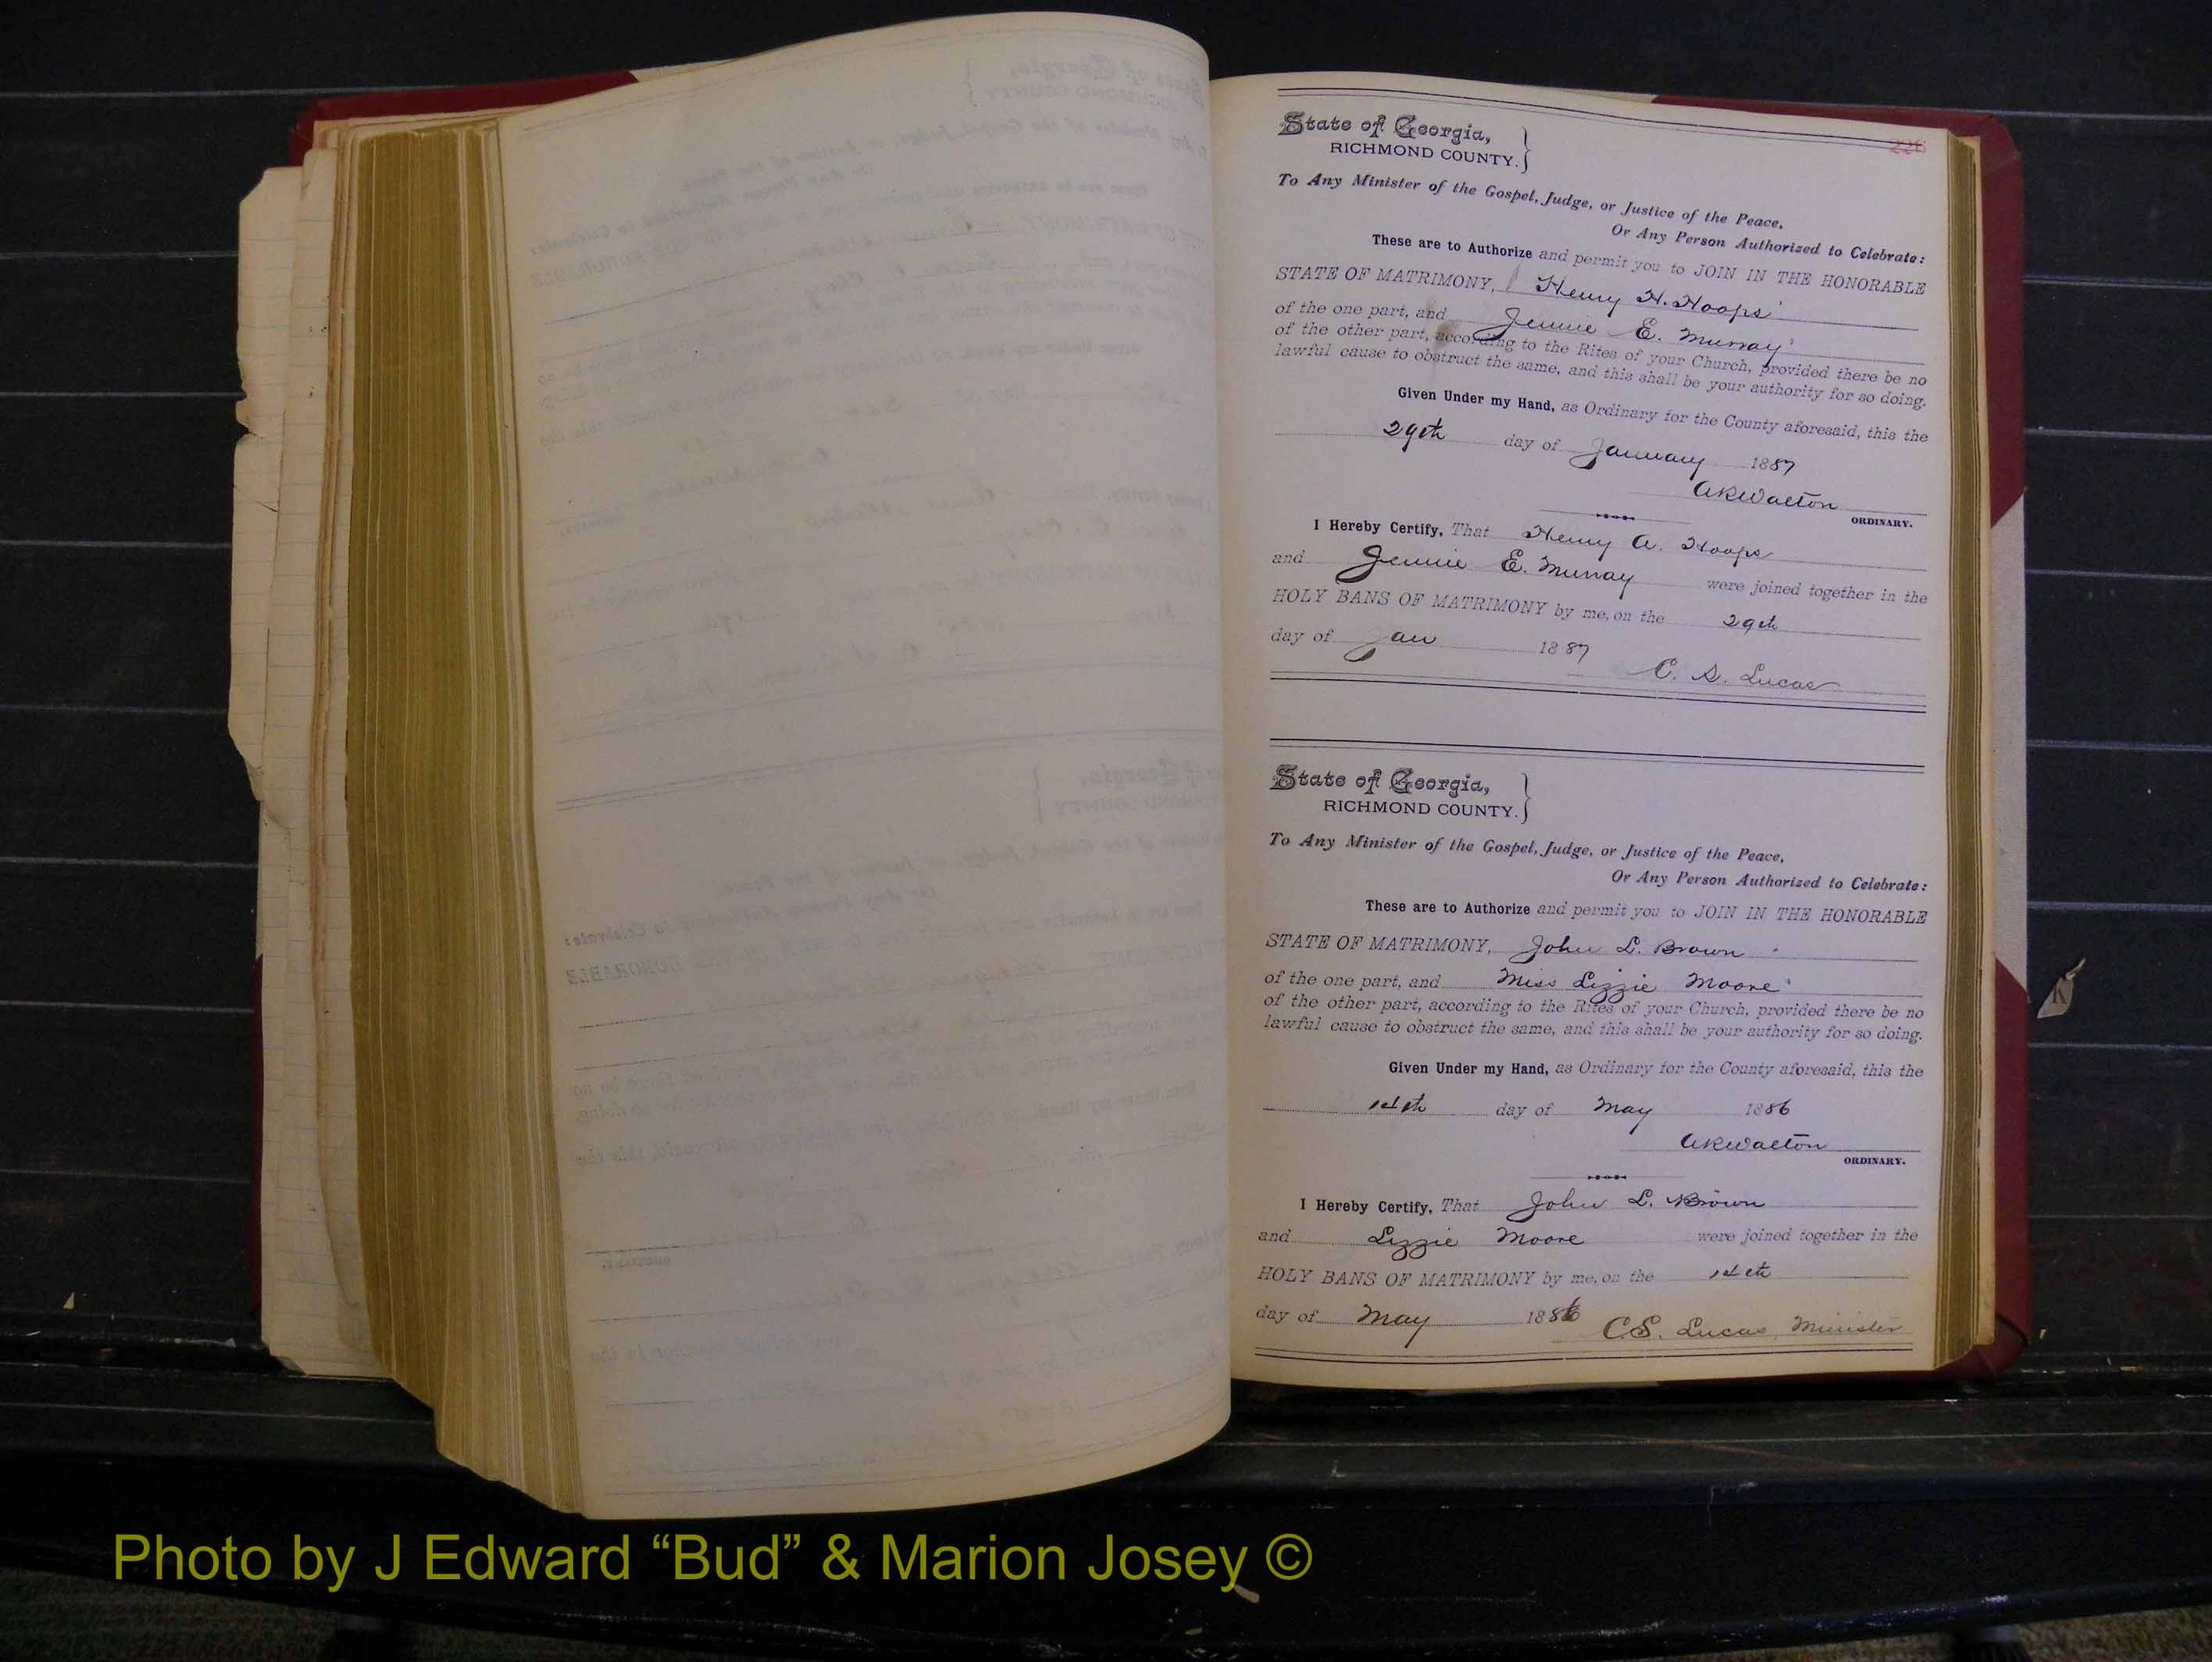 226
State of Georgia,
RICHMOND COUNTY.
To Any Minister of the Gospel, Judge, or Justice of the Peace,
Or Any Person Authorized to Celebrate:
These are to Authorize and permit you to JOIN IN THE HONORABLE
STATE OF MATRIMONY, Henry H. Hoops
of the one part, and Jennie E. Murray
of the other part, according to the Rites of your Church, provided there be no
lawful cause to obstruct the same, and this shall be your authority for so doing.
Given Under my Hand, as Ordinary for the County aforesaid, this the
29th day of January 1887
AKWalton
ORDINARY.
I Hereby Certify, That Henry A. Hoops
and Jennie E. Murray were joined together in the
HOLY BANS OF MATRIMONY by me, on the 29th
day of Jan 1887
C. S. Lucas
State of Georgia,
RICHMOND COUNTY.
To Any Minister of the Gospel, Judge, or Justice of the Peace,
Or Any Person Authorized to Celebrate:
These are to Authorize and permit you to JOIN IN THE HONORABLE
STATE OF MATRIMONY, John L. Brown
of the one part, and Miss Lizzie Moore
of the other part, according to the Rites of your Church, provided there be no
lawful cause to obstruct the same, and this shall be your authority for so doing.
Given Under my Hand, as Ordinary for the County aforesaid, this the
14th day of May 1886
AKWalton
ORDINARY.
I Hereby Certify, That John L. Brown
and Lizzie Moore were joined together in the
HOLY BANS OF MATRIMONY by me, on the 14th
day of May 1886
C.S. Lucas, Minister
Photo by J Edward “Bud” & Marion Josey ©